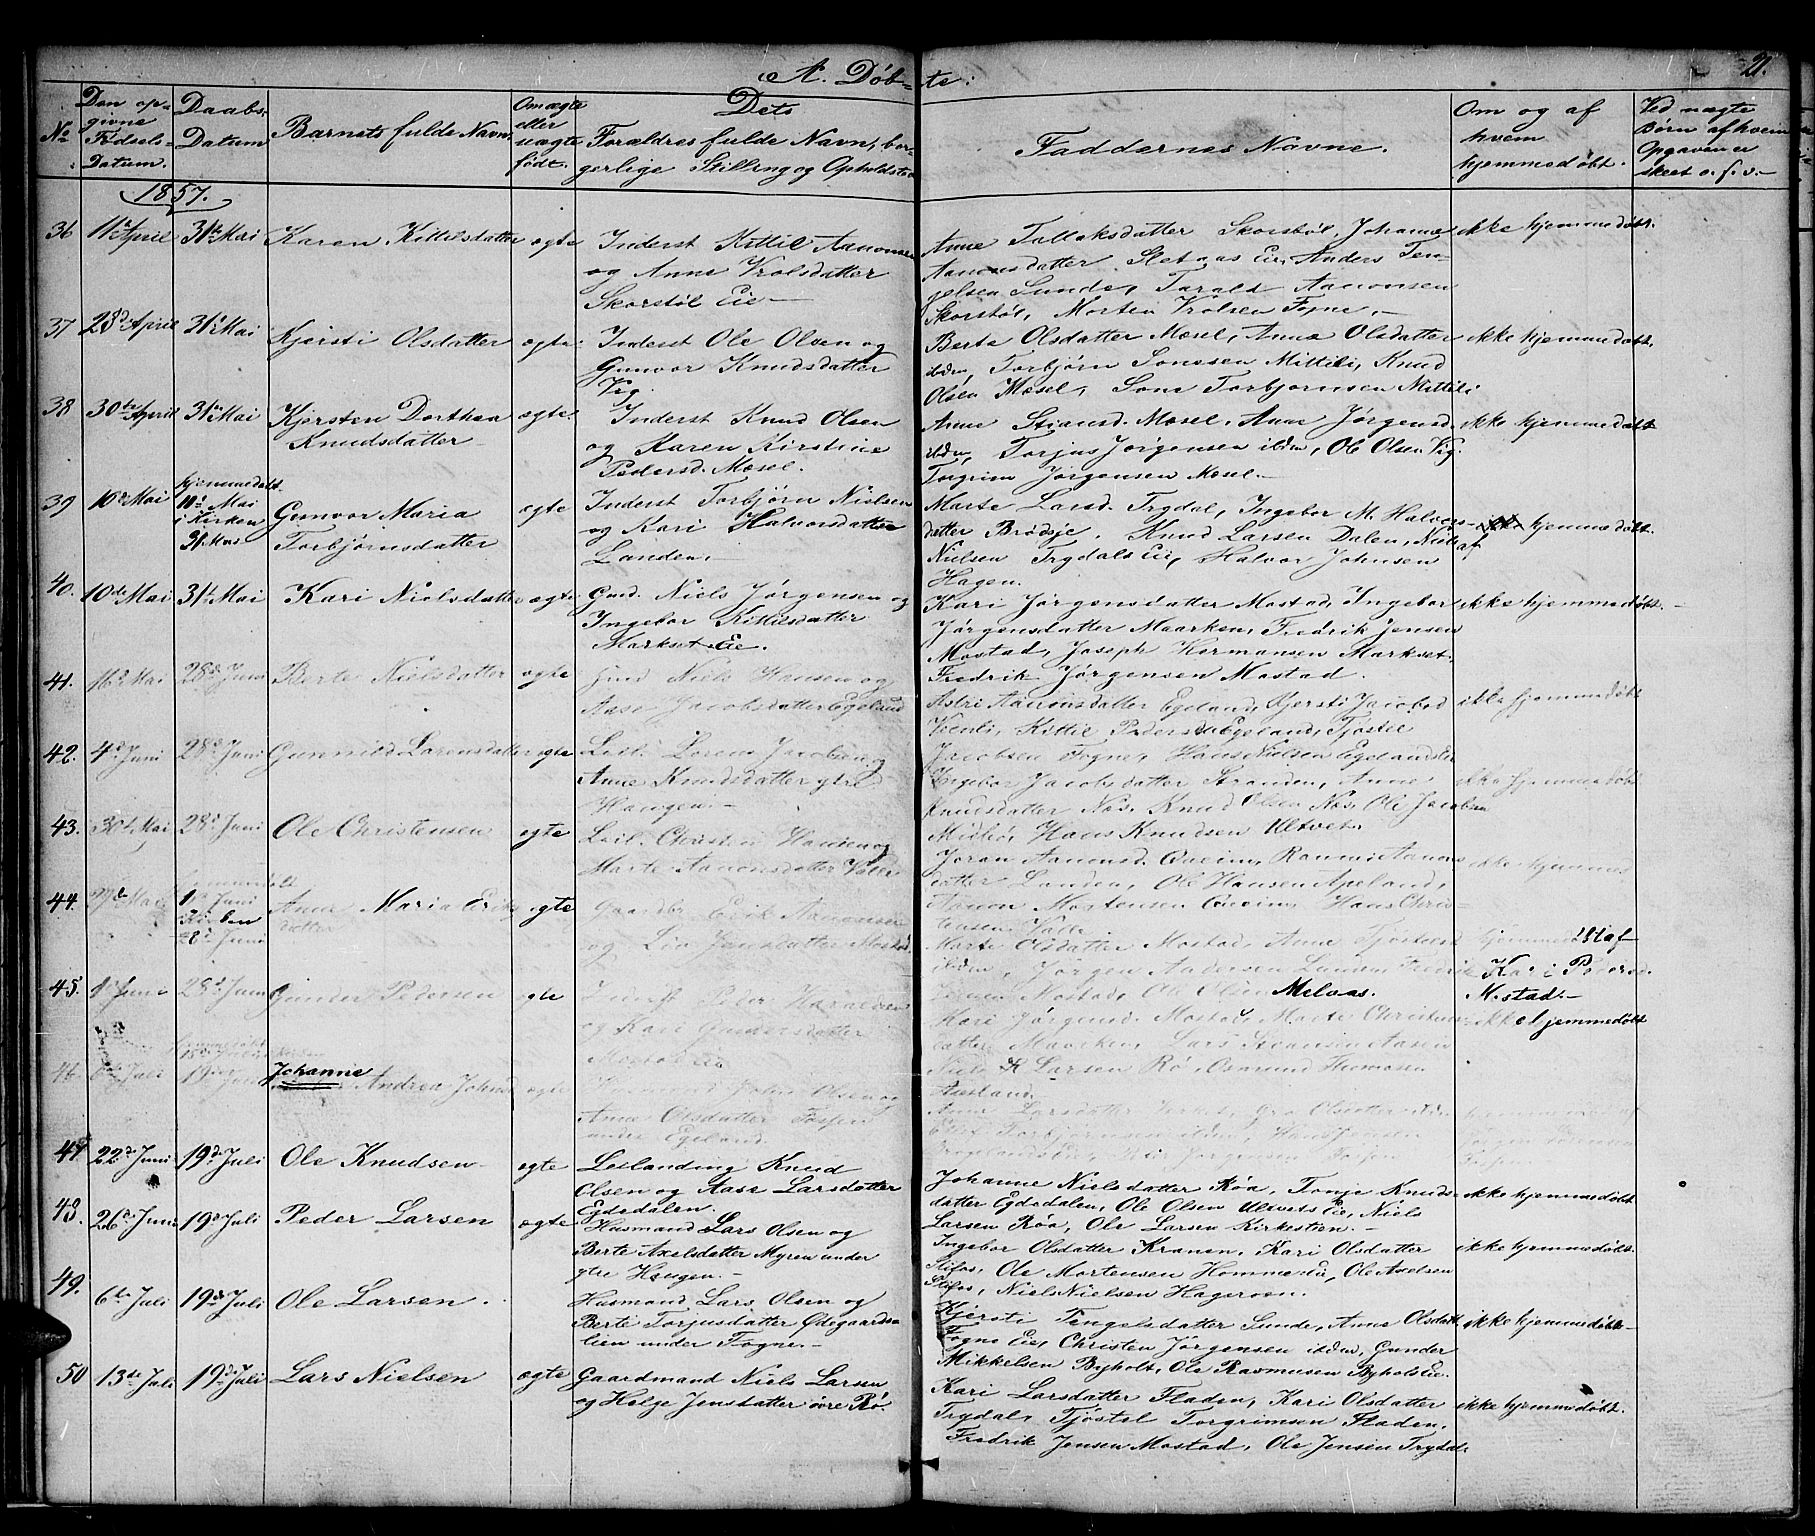 A. Døb- te: 21.
No Den op-givne Fødsels-Datum. Daabs-Datum Barnets fulde Navn. Om ægte eller uægte født. Dets Forældres fulde Navn, bor-gerlige Stilling og Opholdsted Faddernes Navne. Om og af hvem hjemmedøbt. Ved uægte Børn af hvem Opgaven er skeet o. s. v.
1857.
36 11te April 31te Mai Karen Kittilsdatter ægte Inderst Kittil Aanonsen
og Anne Vrolsdatter
Skorstøl Eie
Anne Tallaksdatter Skorstøl, Johanne ikke hjemmedøbt.
Aanonsdatter Sletaas Eie, Anders Ten-
gelsen Sunde, Tarald Aanonsen
Skorstøl, Morten Vrolsen Fogne.
37 23de April 31te Mai Kjersti Olsdatter ægte Inderst Ole Olsen og
Gunvor Knudsdatter
Vig
Berte Olsdatter Mosel, Anne Olsdatter ikke hjemmedøbt.
ibdm, Torbjørn Sonesen Mittili, Knud
Olsen Mosel, Sone Torbjørnsen Mittili
38 30te April 31te Mai Kjersten Dorthea ægte Inderst Knud Olsen
Knudsdatter og Karen Kirstine
Pedersd. Mosel.
Anne Stiansd. Mosel, Anne Jørgensd. ikke hjemmedøbt
ibdm, Torjus Jørgensen ibdm, Ole Olsen Vig,
Torgrim Jørgensen Mosel.
39 10de Mai hjemmedøbt
10de Mai
i Kirken
31 Mai
Gunvor Maria
Torbjørnsdatter
ægte Inderst Torbjørn Nielsen
og Kari Halvorsdatter
Landen.
Marte Larsd. Trydal, Ingebor M. Halvors- hjemmedøbt.
datter Brødsje, Knud Larsen Dalen, Niels af
Nielsen Trydals Eie, Halvor Johnsen
Hagen.
40. 10de Mai 31te Mai Kari Nielsdatter ægte Gmd. Niels Jørgensen og
Ingebor Kittilsdatter
Markset Eie.
Kari Jørgensdatter Mostad, Ingebor ikke hjemmedøbt.
Jørgensdatter Maarken, Fredrik Jensen
Mostad, Joseph Hermansen Markset,
Fredrik Jørgensen Mostad.
41. 16de Mai 28de Juni Berte Nielsdatter ægte Niels Hansen og
Aase Jacobsdatter Egeland
Astri Aanonsdatter Egeland, Kjersti Jacobsd ikke hjemmedøbt
Veenli, Kittil Pedersen Egeland, Tjøstel
Jacobsen Fogne, Hans Nielsen Egelands Eie
42. 4de Juni 28de Juni Gunnild Lorensdatter ægte Leil. Lorens Jacobsen og
Anne Knudsdatter ytre
Haugen.
Ingebor Jacobsdatter Stranden, Anne ikke hjemmedøbt
Knudsdatter Næs, Knud Olsen Næs, Ole Jacobsen
Midbø, Hans Knudsen Ultvet.
43. 30te Mai 28de Juni Ole Christensen ægte Leil. Christen Hansen og
Marte Aanonsdatter Valle
Joran Aanonsd. Qveim, Aanons- ikke hjemmed
datter Landen, Ole Hansen Apeland,
Aanon Mortensen Qveim, Hans Chris-
tensen Valle.
44. 27de Mai hjemmedøbt
1te Juni
Kirken
28de Juni
Anne Maria Eriks
datter
ægte Gaardbr. Erik Aanonsen
og Lia Jensdatter Mostad.
Marte Olsdatter Mostad, Anne Tjøstelsd hjemmedøbt af
ibdm, Jørgen Andersen Landen, Fredrik Kari Pedersd.
Jensen Mostad, Ole Olsen Melaas. Mostad.
45. Juni 28de Juni Gunder Pedersen ægte Inderst Peder
og Kari Gundersdatter
Mostad Eie
Kari Jørgensd. Mostad, Marte Christens- ikke hjemmedøbt
datter Maarken, Lars Stiansen Aasen
Niels K Larsen Rø, Osmund Thomasen
Aasland.
46 Juli 19de Juli Johanne Andrea Johnsd ægte Husmand John Olsen og
Anne Olsdatter Fossen
under Egeland.
Anne Larsdatter, Gro Olsdatter ibdm
Torbjørnsen ibdm, Hans Jensen
Egelands Eie, Jørgensen Fossen
47 22de Juni 19de Juli Ole Knudsen ægte Leilænding Knud
Olsen og Aase Larsdatter
Egdedalen.
Johanne Nielsdatter Røa, Tonje Knuds- ikke hjemmedøbt
datter Egdedalen, Ole Olsen Ultvets Eie, Niels
Larsen Røa, Ole Larsen Kirkestien.
48. 26de Juni 19de Juli Peder Larsen ægte Husmand Lars Olsen og
Berte Axelsdatter Myren under
ytre Haugen.
Ingebor Olsdatter Kranen, Kari Olsdatter ikke hjemmedøbt.
Stifos, Ole Mortensen Homme Eie, Ole Axelsen
Stifos, Niels Nielsen Hageroen.
49. 6te Juli 19de Juli Ole Larsen. Husmand Lars Olsen og
Berte Torjusdatter Ødegaards-
lien under Fogne.
Kjersti Tengelsdatter Sunde, Anne Olsdatt. ikke hjemmedøbt
Fogne Eie, Christen Jørgensen ibdm, Gunder
Mikkelsen Byholt, Ole Rasmusen Byholt Eie.
50 13de Juli 19de Juli Lars Nielsen ægte Gaardmand Niels Larsen
og Helge Jensdatter øvre Rø.
Kari Larsdatter Fladen, Kari Olsdatter ikke hjemmedøbt.
Trydal, Tjøstel Torgrimsen Fladen,
Fredrik Jensen Mostad, Ole Jensen Trydal.